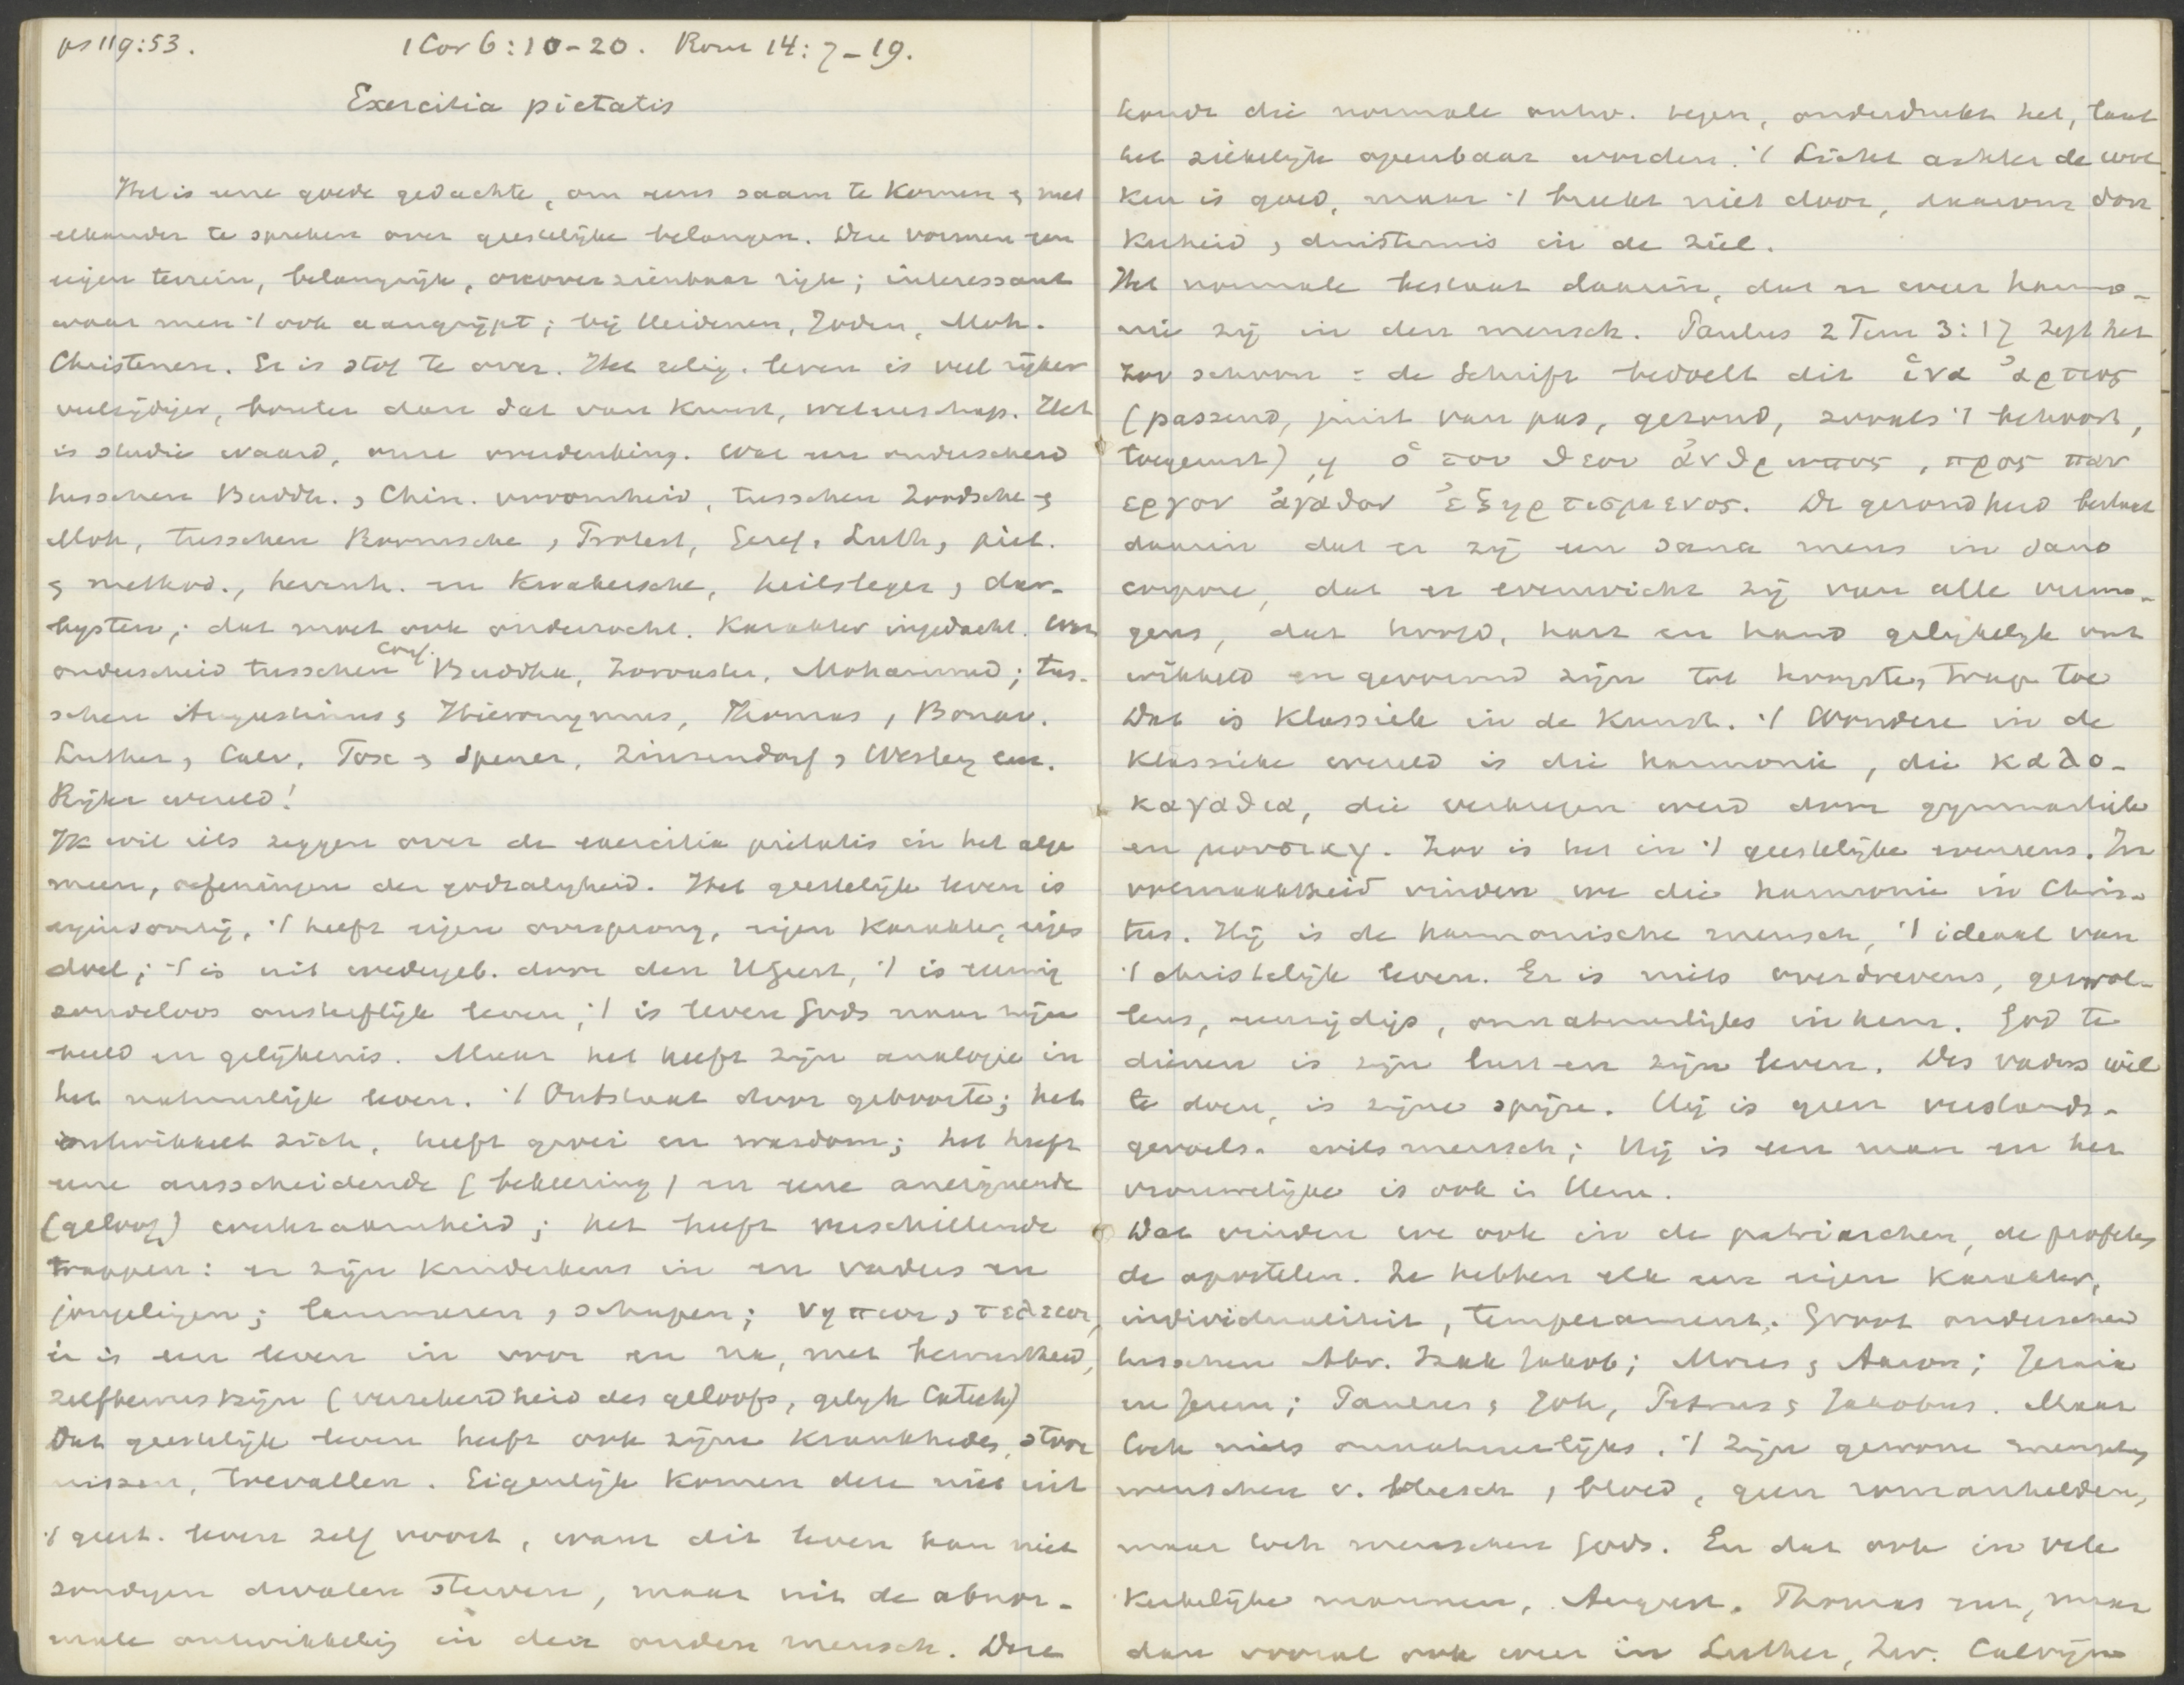 ps 119:53. 1 Cor 6:10-20. Rom 14:7-19.
Exercitia pietatis
Het is eene goede gedachte, om eens saam te komen & met
elkander te spreken over geestelijke belangen. Deze vormen een
eigen terrein, belangrijk, onoverzienbaar rijk; interessant
waar men 't ook aangrijpt; bij Heidenen, Joden, Moh.
Christenen. Er is stof te over. Het relig. leven is veel rijker
veelzijdiger, bonter dan dat van kunst, wetenschap. Het
is studie waard, onze overdenking. Wat een onderscheid
tusschen Buddh. & Chin. vroomheid, tusschen Joodsche &
Moh, tusschen Roomsche & Protest, Geref. Luth, piet.
& method., hernh. en Kwakersche, heilsleger & dar-
bysten; dat moet ook onderzocht. Karakter ingedacht. Wat
onderscheid tusschen Conf. Buddha, Zoroaster, Mohammed; tus-
schen Augustinus & Hieronymus, Thomas & Bonav.
Luther & Calv, Fox & Spener, Zinzendorf & Wesley enz.
Rijke wereld!
Ik wil iets zeggen over de exercitia pietatis in het alge
meen, oefeningen der godzaligheid. Het geestelijk leven is
eigensoortig, 't heeft eigen oorsprong, eigen karakter, eigen
doel; 't is uit wedergeb. door den HGeest, 't is eeuwig
zondeloos onsterflijk leven; 't is leven Gods naar zijn
beeld en gelijkenis. Maar het heeft zijn analogie in
het natuurlijk leven. 't Ontstaat door geboorte; het
ontwikkelt zich, heeft groei en wasdom; het heeft
eene uitscheidende (bekeering) en eene aneignende
(geloof) werkzaamheid; het heeft verschillende
trappen: er zijn kinderkens in en vaders en
jongelingen; lammeren & schapen; νηπιοι & τελειοι,
er is een leven in voor en na, met bewustheid,
zelfbewustzijn (verzekerdheid des geloofs, gelijk Catech)
Dat geestelijk leven heeft ook zijne krankheden, stoor
nissen, toevallen. Eigenlijk komen deze niet uit
't geest. leven zelf voort, want dit leven kan niet
zondigen dwalen sterven, maar uit de abnor-
male ontwikkeling in den ouden mensch. Deze
houdt die normale ontw. tegen, onderdrukt het, laat
het ziekelijk openbaar worden. 't Licht achter de wol
ken is goed, maar 't breekt niet door, daarom don
kerheid & duisternis in de ziel.
Het normale bestaat daarin, dat er weer harmo-
nie zij in den mensch. Paulus 2 Tim 3:17 zegt het
zoo schoon: de Schrift bedoelt dit ἱνα ἀρτιος
(passend, juist van pas, gezond, zooals 't behoort,
toegerust) ῃ ὁ του θεου ἀνθρωπος, προς παν
εργον ἀγαθον ἐξηρτισμενος. De gezondheid bestaat
daarin dat er zij een sana mens in sano
corpore, dat er evenwicht zij van alle vermo-
gens, dat hoofd, hart en hand gelijkelijk ont
wikkeld en gevormd zijn tot hoogsten trap toe
Dat is klassiek in de kunst. 't Wondere in de
klassieke wereld is die harmonie, die καλο-
καγαθια, die verkregen werd door gymnastiek
en μουσικη. Zoo is het in 't geestelijke eveneens. In
volmaaktheid vinden we die harmonie in Chris-
tus. Hij is de harmonische mensch, 't ideaal van
't christelijk leven. Er is niets overdrevens, gezwol-
lens, eenzijdigs, onnatuurlijks in hem. God te
dienen is zijn lust en zijn leven. Des vaders wil
te doen, is zijne spijze. Hij is geen verstands-
gevoels- wilsmensch; Hij is een man en het
vrouwelijke is ook in Hem.
Dat vinden we ook in de patriarchen, de profeten
de apostelen. Ze hebben elk een eigen karakter,
individualiteit, temperament. Groot onderscheid
tusschen Abr. Izak Jakob; Mozes & Aaron; Jesaia
en Jerem; Paulus & Joh, Petrus & Jakobus. Maar
toch niets onnatuurlijks. 't Zijn gewone menschen
menschen v. vleesch & bloed, geen romanhelden,
maar toch menschen Gods. En dat ook in vele
kerkelijke mannen, August. Thomas enz, maar
dan vooral ook weer in Luther, Zw. Calvijn